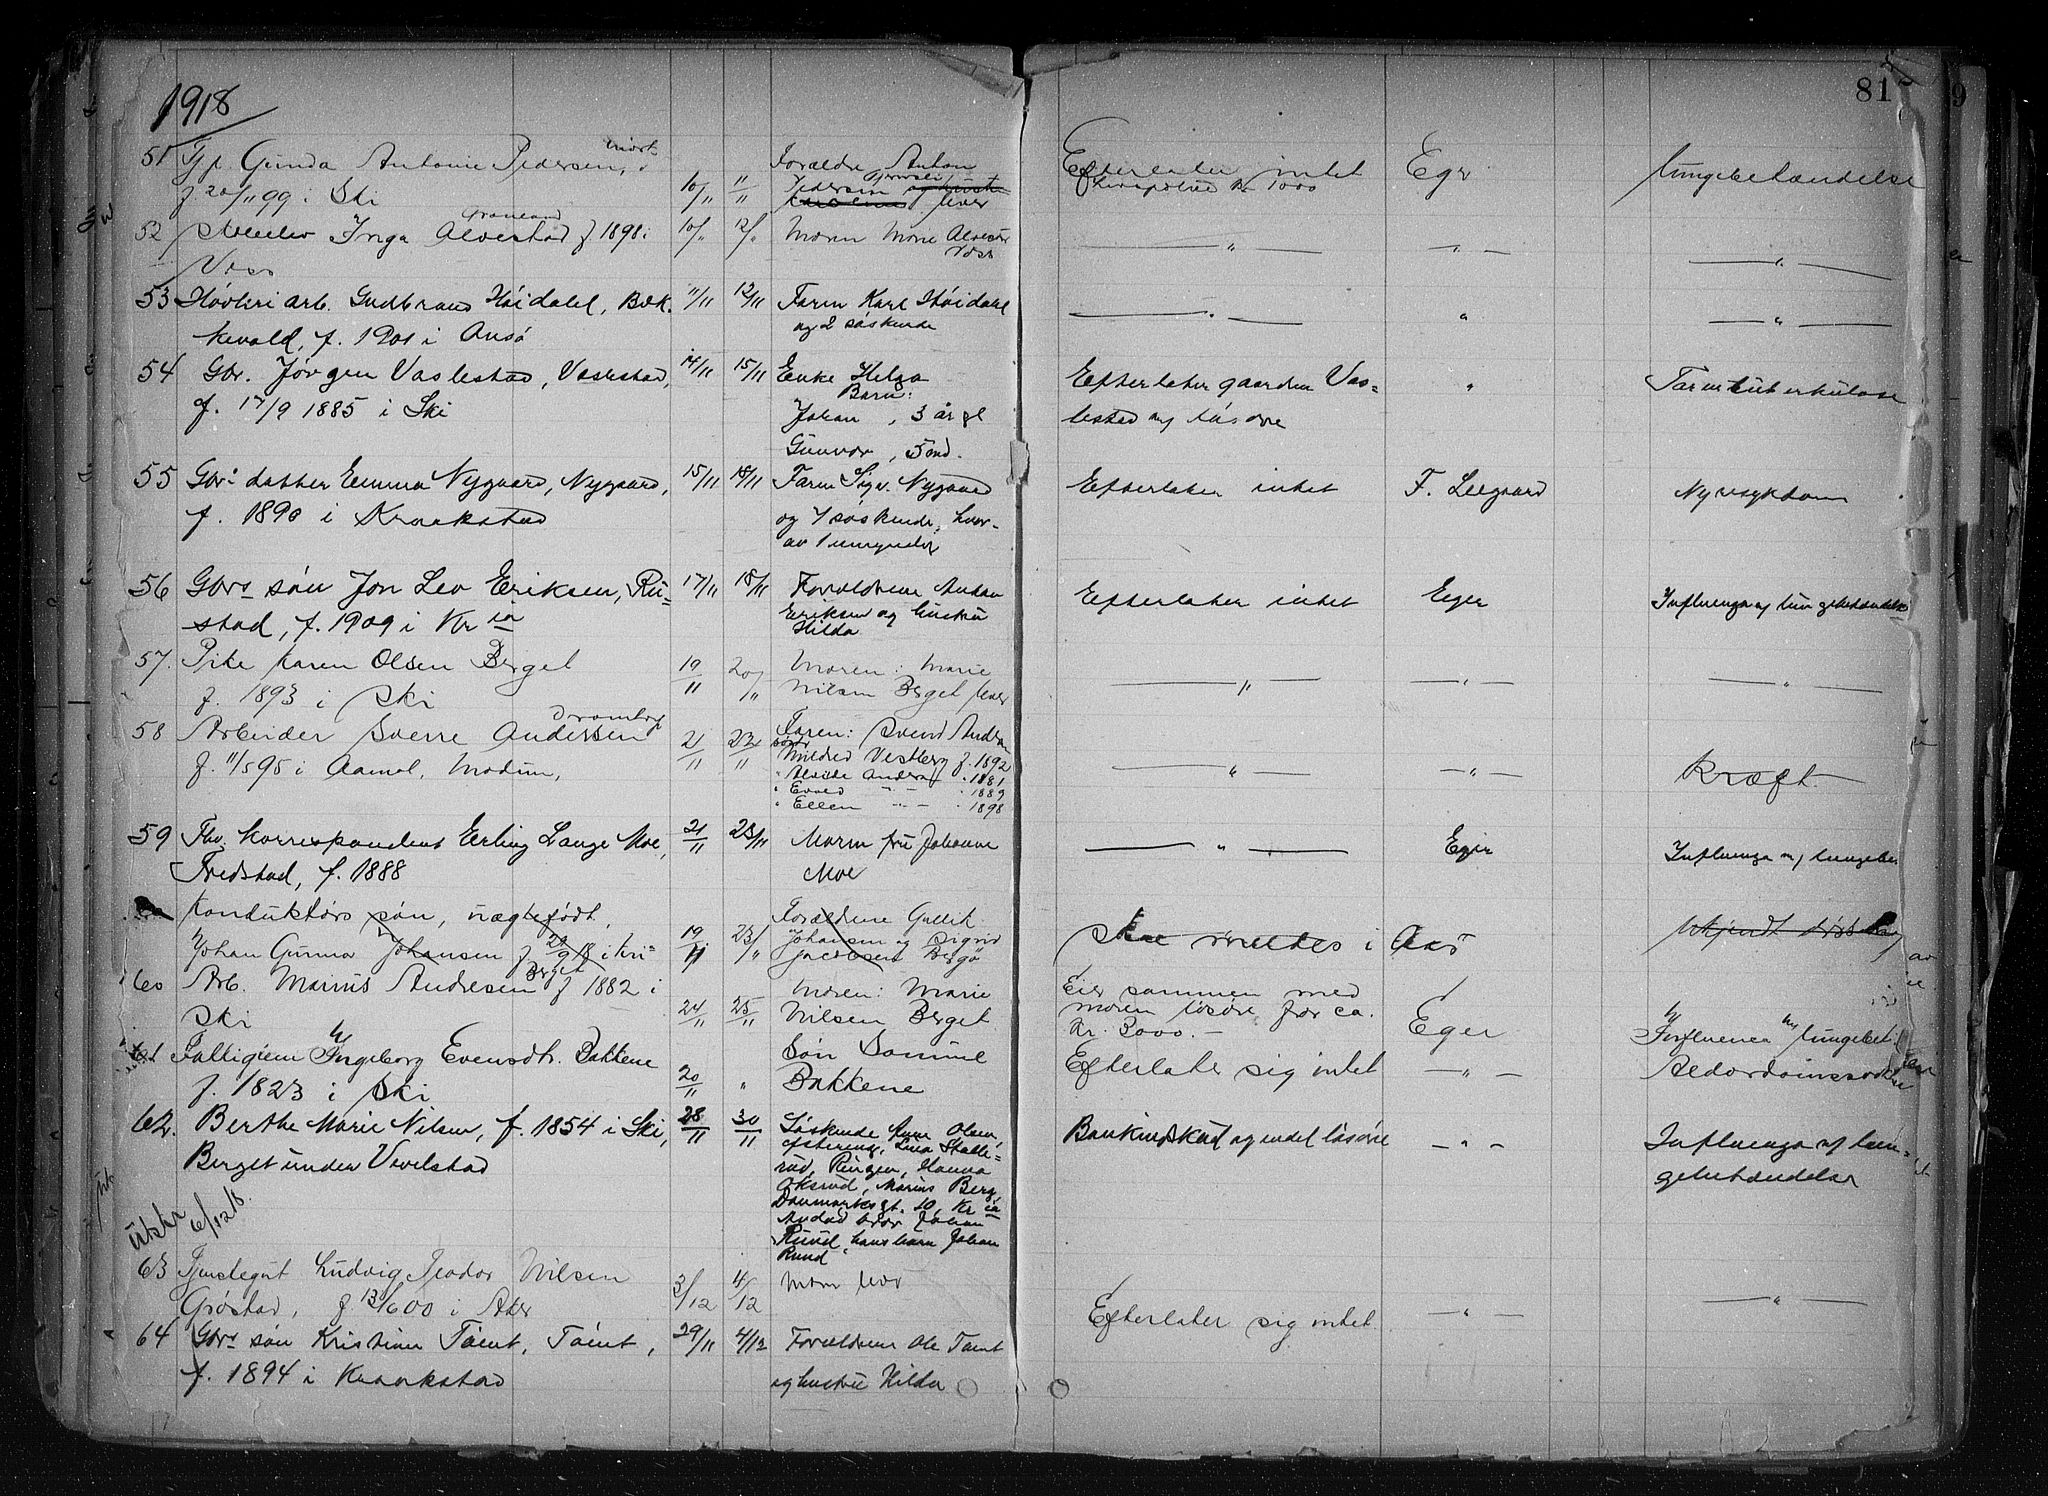 1918
81
9
51 Tjp. Gunda Antonie Pedersen, i
f 20/11 99 i Ski
10/11 11/11
Forældre Anton
Pedersen
lever
Efterlater intet
Livspolise kr 1000
Eger
lungebetændelse
52 Inga Alvestad f. 1898 i
Voss
10/11 12/11
Moren Marie Alvestad
Voss
— " — — " — — " —
53 Høvleriarb. Gudbrand Høidalel, Bæk-
kevold, f. 1901 i Ansø
11/11 12/11
Faren Karl Høidalel
og 2 søskende
— " — " — " —
54 Gbr. Jörgen Vaslestad, Vaslestad,
f. 17/9 1885 i Ski
14/11 15/11
Enke Helga
Barn:
Johan, 3 år gl
Gunvor, 5 md.
Efterlater gaarden Vas-
lestad og løsøre
"
Tarmtuberkulose
55 Gbr. datter Emma Nygaard, Nygaard,
f. 1890 i Kraakstad
15/11 18/11
Farm Sigv. Nygaard
og 7 søskende, hvor-
av 1 umyndig
Efterlater intet
F. Leegaard
Nyresykdom
56 Gbrs søn Jon Leo Eriksen, Ru-
stad, f. 1909 i Kr ia
17/11 18/11
Forældrene Anton
Eriksen og hustru
Hilda
Efterlater intet
Eger
Influenza og lungebetændelse
57. Pike Karen Olsen Berget
f. 1893 i Ski
19/11 20/11
Moren: Marie
Nilsen Berget lever
— " — — " — — " —
58 Arbeider Sverre Andersen
Drømtorp
f. 11/5 95 i Aamot, Modum,
21/11 23/11
Faren: Svend Anders
Mildred Vestberg f. 1892
" Alvilde Anders " 1881
" Evald — " — " 1889
" Ellen — " — " 1898
— " — — " —
Kræft.
59 Fhv. Korrespondent Erling Lange Moe,
Fredstad, f. 1888
21/11 23/11
Moren fru Johanne
Moe
— " —
Eger
Influenza og lungebet
Konduktørs søn, uægtefødt,
Johan Gunnar Johansen f 20/9 18 i Kri-
19/11 23/11
Forældrene Gullik
Johansen og Sigrid
Jacobsen Bergø
Skal meldes i Aas
Ukjendt dødsaarsag
60 Arb. Marius Andresen Berget f 1882 i
Ski
24/11 25/11
Moren: Marie
Nilsen Berget
Eier sammen med
moren løsøre for ca.
Kr. 3000.—
Eger
Influenca og lungebet.
61 Fattiglem Ingeborg Evensdtr. Bakkene
f. 1823 i Ski
20/11 "
Søn Samuel
Bakkene
Efterlater sig intet
— " —
Alderdomssvakhe
62. Berthe Marie Nilsen, f. 1854 i Ski,
Berget under Vevelstad
28/11 30/11
Søskende Anne Olsen,
Lina Stalle-
rud, Ringen, Hanna
Oksrud, Marius Berg,
Danmarksgt. 10, Kr ia
Avdød bror Johan
Ruud, hans barn Johan
Ruud
Bankindskud og endel løsøre
— " —
Influenza og lun-
gebetændelse
Utskr 6/12 18.
63 Tjenstegut Ludvig Teodor Nilsen
Grøstad, f. 13/6 00 i Aker
3/12 4/12
Mor lever
Efterlater sig intet
— " — — " —
64 Gbrs søn Kristian Tømt, Tømt,
f. 1894 i Kraakstad
29/11 4/12
Forældrene Ole Tømt
og hustru Hilda